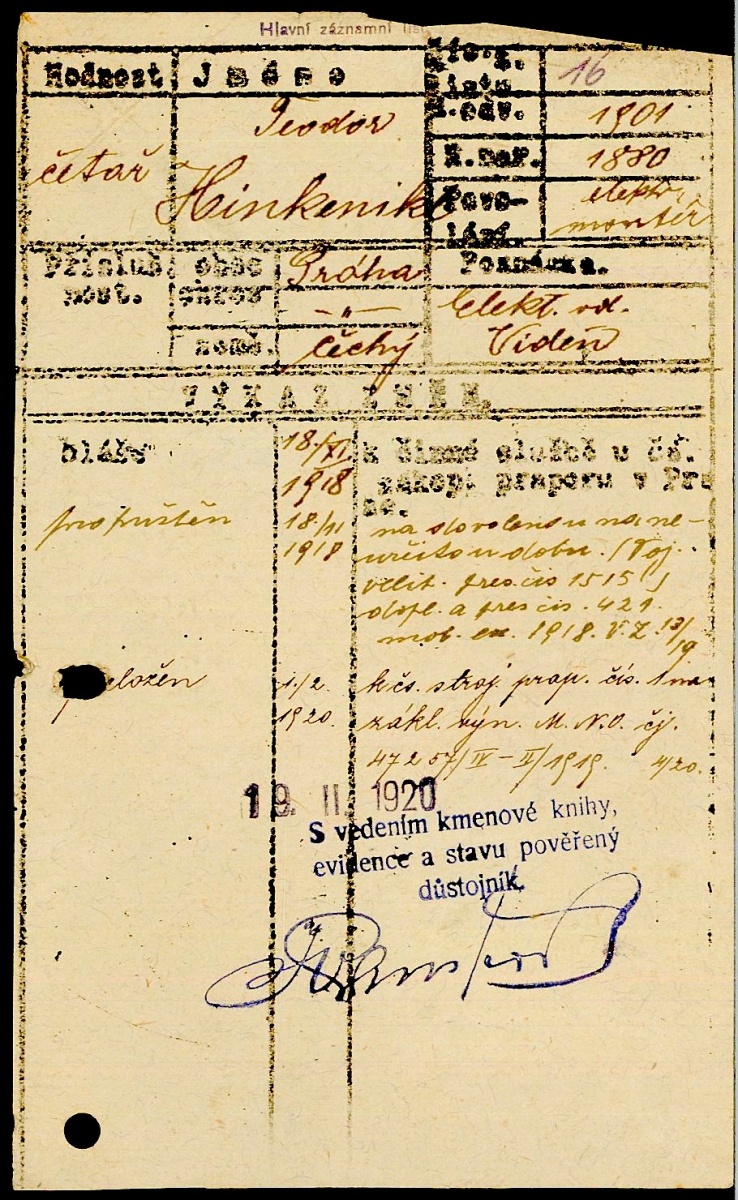 Hlavní záznamní list
Hodnost Jméno
listu 16
R.odv. 1901
Teodor
četař Hinkenikl
R.nar. 1880
Povo-
lání
elektr.
montér
Přísluš
nost.
obec Práha
okres —„—
země. čechý
Poznámka.
Elekt. od.
Videň
VÝKAZ ZMĚN.
hlášs 18./XI. 1918 k činné službě u čs.
zákop. praporu v Pra
ze.
propuštěn 18./11 1918 na dovolenou na ne-
určitou dobu. (Voj.
velit. pres.čis 1515)
dopl. a pres čis. 421.
mob. ex. 1918. V.Z. 13/19
ložěn 1./2. 1920. k čs. stroj. prap. čís. 1 na
zákl. výn. M.N.O. čj.
47257/IV-II/1919. 4/20.
19. II. 1920
S vedením kmenové knihy,
evidence a stavu pověřený
důstojník.